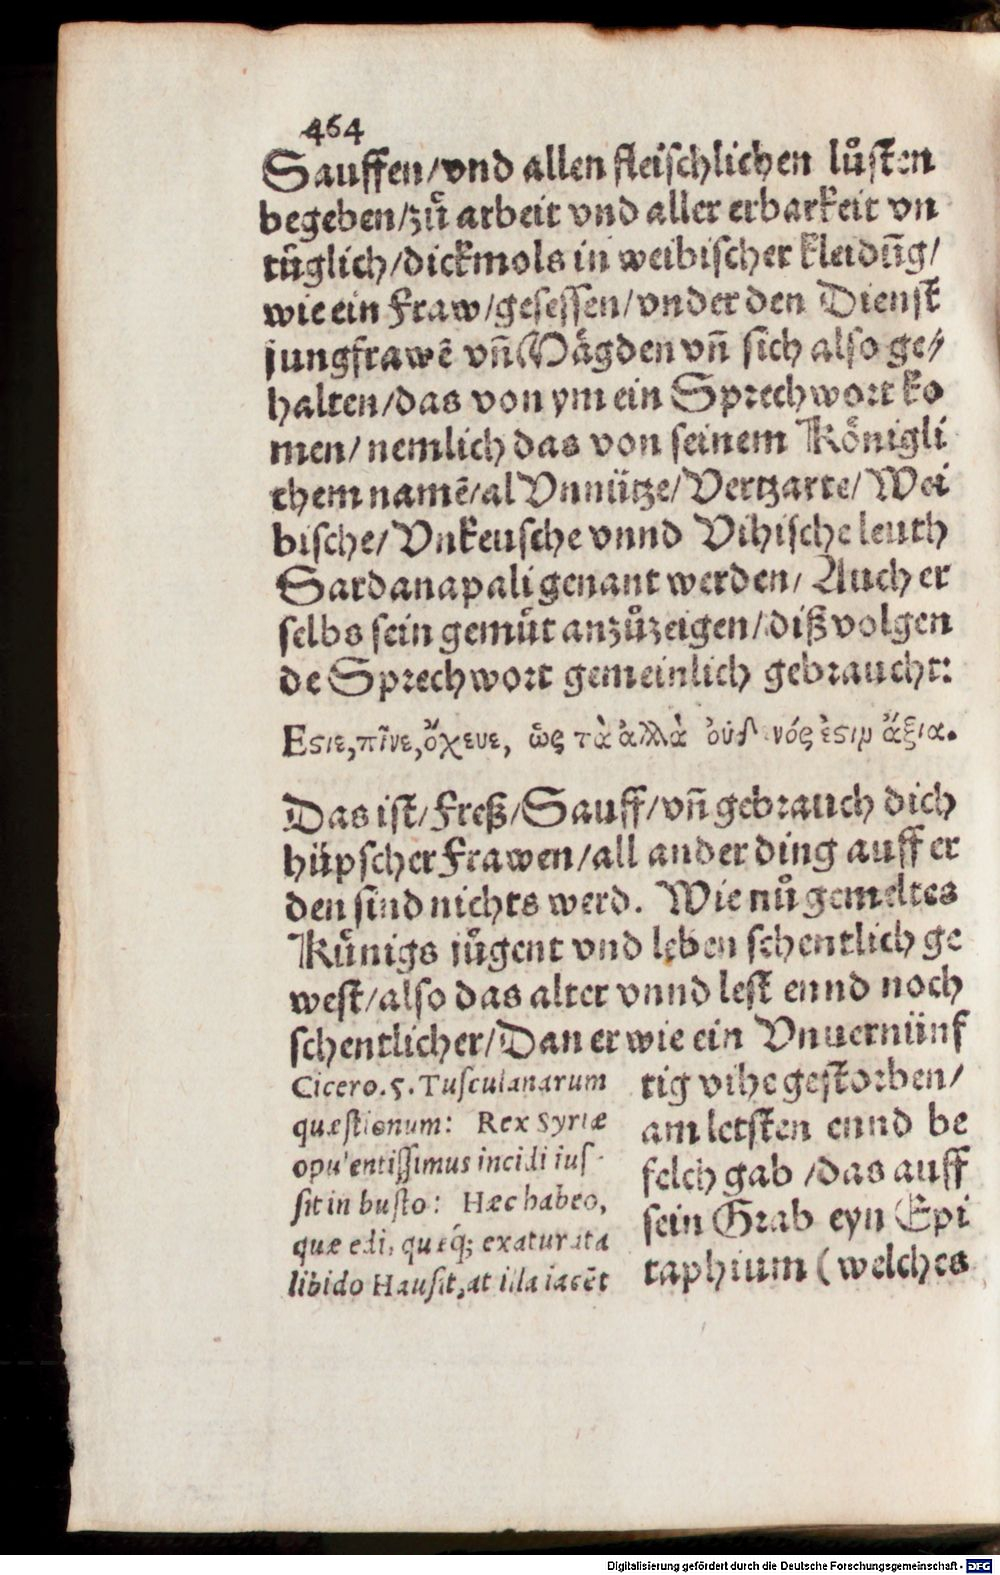 464
Sauffen/vnd allen fleischlichen lůsten
begeben/zů arbeit vnd aller erbarkeit vn
tůglich/dickmols in weibischer kleidūg/
wie ein Fraw/gesessen/vnder den Dienst
jungfrawē vñ Mägden vñ sich also ge⸗
halten/das von ym ein Sprechwort ko
men/nemlich das von seinem Königli
chem namē/al Vnnütze/Vertzarte/Wei
bische/Vnkeusche vnnd Vihische leuth
Sardanapali genant werden/Auch er
selbs sein gemůt anzůzeigen/diß volgen
de Sprechwort gemeinlich gebraucht:
Eϛιε,πῖνε,ὄχευε, ὥς τὰ ἀλλὰ νός ἐϛιμ ἄξια.
Das ist/Freß/Sauff/vñ gebrauch dich
hüpscher Frawen/all ander ding auff er
den sind nichts werd. Wie nů gemeltes
Kůnigs jůgent vnd leben schentlich ge
west/also das alter vnnd lest ennd noch
schentlicher/Dan er wie ein Vnuernünf
tig vihe gestorben/
am letsten ennd be
felch gab /das auff
sein Grab eyn Epi
taphium (welches
Cicero.5.Tusculanarum
quæstionum: Rex Syriæ
opulentissimus incidi ius-
sit in busto: Hæc habeo,
quæ edi, quæq́; exaturata
libido Hausit,at illa iacēt
Digitalisierung gefördert durch die Deutsche Forschungsgemeinschaft - DFG